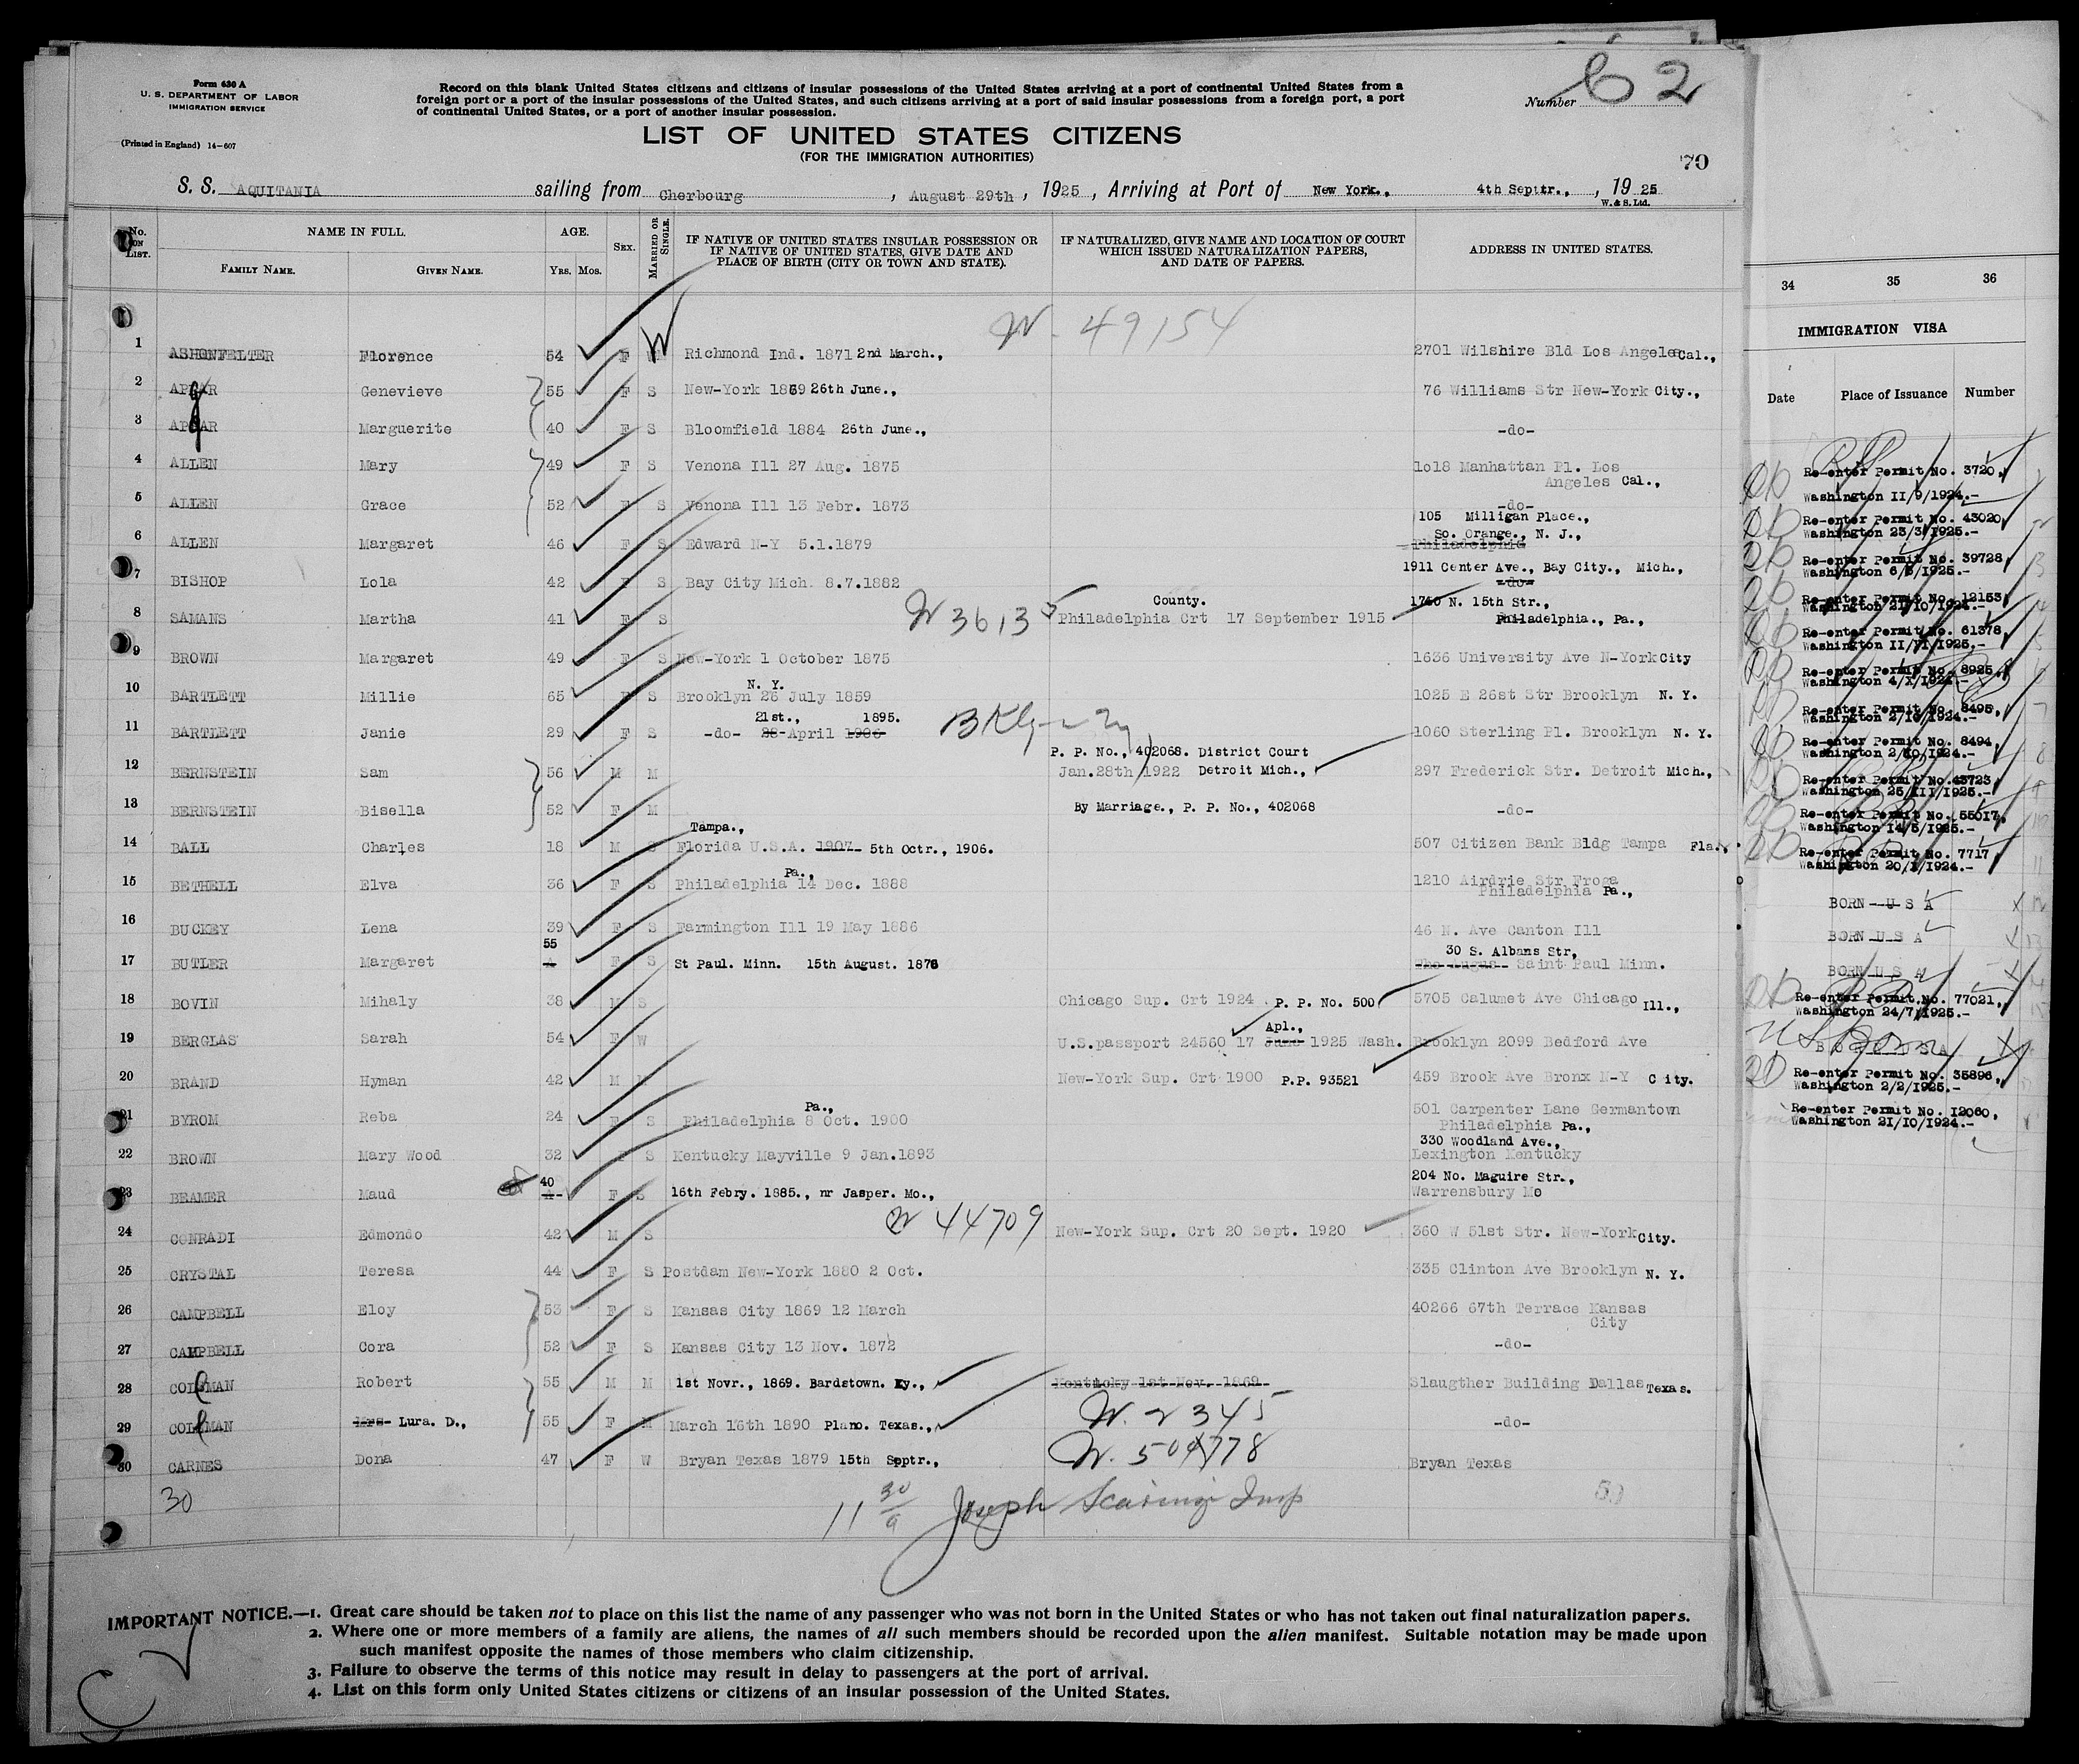 Form 630 A
U. S. DEPARTMENT OF LABOR
IMMIGRATION SERVICE
(Printed in England) 14-607
Record on this blank United States citizens and citizens of insular possessions of the United States arriving at a port of continental United States from a
foreign port or a port of the insular possessions of the United States, and such citizens arriving at a port of said insular possessions from a foreign port, a port
of continental United States, or a port of another insular possession.
Number 62
LIST OF UNITED STATES CITIZENS
(FOR THE IMMIGRATION AUTHORITIES)
70
S. S. AQUITANIA sailing from Cherbourg, August 29th, 1925, Arriving at Port of New York., 4th Septtr., , 1925
W. & S. Ltd.
No. ON LIST. NAME IN FULL. FAMILY NAME. GIVEN NAME. AGE. YRS. MOS. SEX. MARRIED OR SINGLE. IF NATIVE OF UNITED STATES INSULAR POSSESSION OR IF NATIVE OF UNITED STATES, GIVE DATE AND PLACE OF BIRTH (CITY OR TOWN AND STATE). IF NATURALIZED, GIVE NAME AND LOCATION OF COURT WHICH ISSUED NATURALIZATION PAPERS, AND DATE OF PAPERS. ADDRESS IN UNITED STATES.
W - 49154
1 ASHONFELTER Florence 54 F W Richmond Ind. 1871 2nd March., 2701 Wilshire Bld Los Angeles Cal.,
2 APGAR Genevieve 55 F S New-York 1869 26th June., 76 Williams Str New-York City.,
3 APGAR Marguerite 40 F S Bloomfield 1884 26th June., -do-
4 ALLEN Mary 49 F S Venona Ill 27 Aug. 1875 1018 Manhattan Pl. Los
Angeles Cal.,
5 ALLEN Grace 52 F S Venona Ill 13 Febr. 1873 -do-
105 Milligan Place.,
So. Orange., N. J.,
6 ALLEN Margaret 46 F S Edward N-Y 5.1.1879 Philadelphia
1911 Center Ave., Bay City., Mich.,
7 BISHOP Lola 42 F S Bay City Mich. 8.7.1882 -do-
County. 1760 N. 15th Str.,
8 SAMANS Martha 41 F S W 36135 Philadelphia Crt 17 September 1915 Philadelphia., Pa.,
9 BROWN Margaret 49 F S New-York 1 October 1875 1636 University Ave N-York City
N. Y.
10 BARTLETT Millie 65 F S Brooklyn 28 July 1859 1025 E 26st Str Brooklyn N. Y.
21st., 1895.
11 BARTLETT Janie 29 F S -do- 28 April 1906 1060 Sterling Pl. Brooklyn N. Y.
P. P. No., 402068. District Court
12 BERNSTEIN Sam 56 M M Jan.28th 1922 Detroit Mich., 297 Frederick Str. Detroit Mich.,
13 BERNSTEIN Bisella 52 F M By Marriage., P. P. No., 402068 -do-
Tampa.,
14 BALL Charles 18 M S Florida U.S.A. 1907 5th Octr., 1906. 507 Citizen Bank Bldg Tampa Fla.,
Pa.,
15 BETHELL Elva 36 F S Philadelphia 14 Dec. 1888 1210 Airdrie Str Froga
Philadelphia Pa.,
16 BUCKEY Lena 39 F S Farmington Ill 19 May 1886 46 N. Ave Canton Ill
55 30 S. Albans Str,
17 BUTLER Margaret F S St Paul. Minn. 15th August. 1870 Saint Paul Minn.
18 BOVIN Mihaly 38 M S Chicago Sup. Crt 1924 P. P. No. 500 5705 Calumet Ave Chicago Ill.,
Apl.,
19 BERGLAS Sarah 54 F W U.S.passport 24560 17 June 1925 Wash. Brooklyn 2099 Bedford Ave
20 BRAND Hyman 42 M New-York Sup. Crt 1900 P.P. 93521 459 Brook Ave Bronx N-Y City.
Pa.,
21 BYROM Reba 24 F S Philadelphia 8 Oct. 1900 501 Carpenter Lane Germantown
Philadelphia Pa.,
330 Woodland Ave.,
22 BROWN Mary Wood 32 F S Kentucky Mayville 9 Jan.1893 Lexington Kentucky
40 204 No. Maguire Str.,
23 BEAMER Maud F S 16th Febry. 1885., nr Jasper. Mo., Warrensbury Mo
W 44709
24 CONRADI Edmondo 42 M S New-York Sup. Crt 20 Sept. 1920 360 W 51st Str. New-York City.
25 CRYSTAL Teresa 44 F S Postdam New-York 1880 2 Oct. 335 Clinton Ave Brooklyn N. Y.
26 CAMPBELL Eloy 53 F S Kansas City 1869 12 March 40266 67th Terrace Kansas
City
27 CAMPBELL Cora 52 F S Kansas City 13 Nov. 1872 -do-
28 COLEMAN Robert 55 M M 1st Novr., 1869. Bardstown. Ky., Kentucky 1st Nov. 1869 Slaugther Building Dallas Texas.
W. 2345
29 COLEMAN Mrs Lura. D., 55 F M March 16th 1890 Plano. Texas., -do-
W. 504778
30 CARNES Dona 47 F W Bryan Texas 1879 15th Septr., Bryan Texas
30
11 30/9 Joseph Insp
34 35 36
IMMIGRATION VISA
Date Place of Issuance Number
Re-enter Permit No. 3720,
Washington II/9/1924.-
Re-enter Permit No. 43020,
Washington 23/3/1925.-
Re-enter Permit No. 39728,
Washington 6/3/1925.-
Re-enter Permit No. 12153,
Washington 21/10/1924.-
Re-enter Permit No. 61378,
Washington II/VI/1925.-
Re-enter Permit No. 8925,
Washington 4/X/1924.-
Re-enter Permit No. 8495,
Washington 2/10/1924.-
Re-enter Permit No. 8494,
Washington 2/10/1924.-
Re-enter Permit No. 43723,
Washington 25/III/1925.-
Re-enter Permit No. 55017,
Washington 14/5/1925.-
Re-enter Permit No. 7717,
Washington 20/X/1924.-
BORN U S A
BORN U S A
BORN U S A
Re-enter Permit No. 77021,
Washington 24/7/1925.-
US Born
Re-enter Permit No. 35896,
Washington 2/2/1925.-
Re-enter Permit No. I2060,
Washington 21/IO/1924.-
IMPORTANT NOTICE.—1. Great care should be taken not to place on this list the name of any passenger who was not born in the United States or who has not taken out final naturalization papers.
2. Where one or more members of a family are aliens, the names of all such members should be recorded upon the alien manifest. Suitable notation may be made upon
such manifest opposite the names of those members who claim citizenship.
3. Failure to observe the terms of this notice may result in delay to passengers at the port of arrival.
4. List on this form only United States citizens or citizens of an insular possession of the United States.